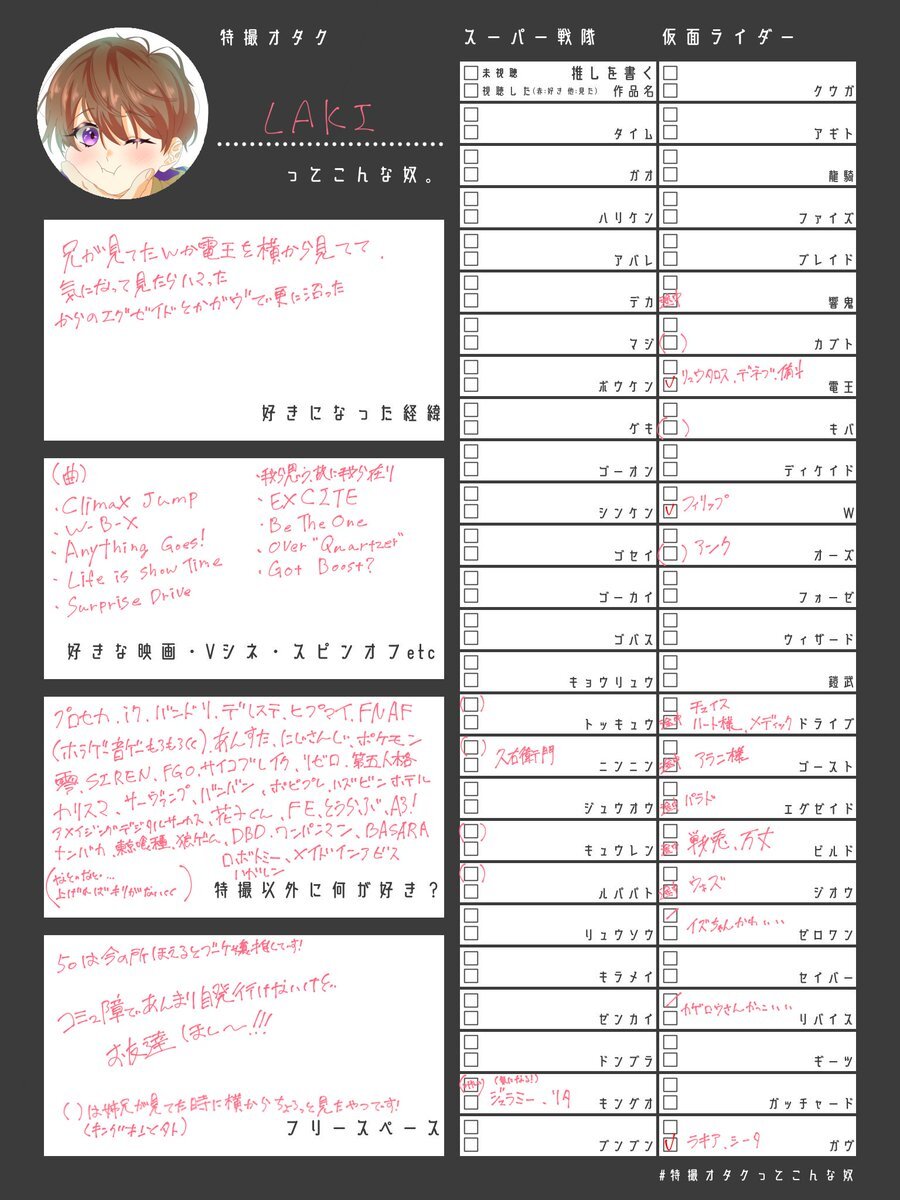 特撮オタク
LAKI
ってこんな奴。
兄が見てたんか電王を横から見てて、
気になって見たらハマった
からのエグゼイドとかガヴで更に沼った
好きになった経緯
(曲)
・Climax Jump
・W-B-X
・Anything Goes!
・Life is Show Time
・Surprise Drive
・我ら思う、故に我ら在り
・EXCITE
・Be The One
・Over "Quartzer"
・Got Boost?
好きな映画・Vシネ・スピンオフetc
プロセカ、i7、バンドリ、デレステ、ヒプマイ、FNAF
(ホラゲ音ゲーもろもろ)、あんすた、にじさんじ、ポケモン
零、SIREN、FGO、サイコブレイク、リゼロ、第五人格
カリスマ、サーヴァンプ、バンバン、ポピプレ、ハズビンホテル
アメイジングデジタルサーカス、花子くん、FE、とうらぶ、A3!
ナンバカ、東京喰種、狼ゲーム、DBD、ワンパンマン、BASARA
ロボトミー、メイドインアビス
ハガレン
(などのなど…
上げればキリがない)
特撮以外に何が好き?
50は今の所ほえるとブーケ嬢推しです!
コミュ障であんまり自発行けないけど…
お友達ほし〜!!!
( )は姉兄が見てた時に横からちょろっと見たやつです!
フリースペース
スーパー戦隊
未視聴 推しを書く
視聴した(赤:好き 他:見た) 作品名
タイム
ガオ
ハリケン
アバレ
デカ
マジ
ボウケン
ゲキ
ゴーオン
シンケン
ゴセイ
ゴーカイ
ゴバス
キョウリュウ
( )
トッキュウ
( ) 久右衛門
ニンニン
ジュウオウ
( )
キュウレン
( )
ルパパト
リュウソウ
キラメイ
ゼンカイ
ドンブラ
(気になる!)
ジェラミー、リタ
キングオ
ブンブン
仮面ライダー
クウガ
アギト
龍騎
ファイズ
ブレイド
響鬼
( ) カブト
リュウタロス、デネブ、侑斗
電王
( ) キバ
ディケイド
フィリップ
W
( ) アンク
オーズ
フォーゼ
ウィザード
鎧武
チェイス
ハート様、メディック ドライブ
アラン様
ゴースト
パラド
エグゼイド
戦兎、万丈
ビルド
ウォズ
ジオウ
イズちゃんかわいい
ゼロワン
セイバー
カゲロウさんかっこいい
リバイス
ギーツ
ガッチャード
ラキア、シータ
ガヴ
#特撮オタクってこんな奴